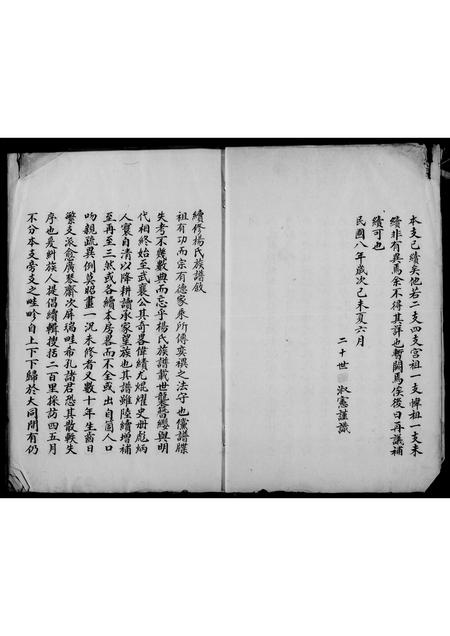 本支已續矣他若二支四支宮祖一支悼祖一支未
續非有異焉余不得其詳也暫闕焉俟後日再議補
續可也
民國八年歲次己未夏六月
二十世 淑憲謹識
續修楊氏族譜敘
祖有功而宗有德家乘所傳奕禩之法守也儻譜牒
失考不幾數典而忘乎楊氏族譜載世襲簪纓與明
代相終始至武襄公其奇畧偉績尤焜燿史冊彪炳
人寰自清以降耕讀承家望族也其譜雖陸續增補
至再至三然或各續本房畧而不全或出自箇人口
吻親疏異例莫昭畫一況未修者又數十年生齒日
繁支派愈廣琴齋次屏瑞哇希孔諸君恐其散軼失
序也爰糾族人提倡續輯搜括二百里採訪四五月
不分本支旁支之畦畛自上下下歸於大同間有仍